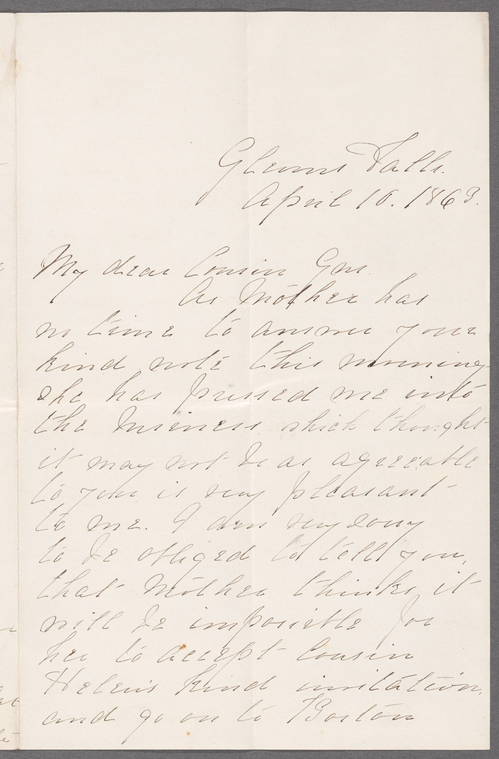 Glenns Falls.
April 10. 1863.
My dear Cousin Gus.
As Mother has
no time to answer your
kind note this morning
she has pressed me into
the business which though
it may not be as agreeable
to you is very pleasant
to me. I am very sorry
to be obliged to tell you,
that Mother thinks it
will be impossible for
her to accept Cousin
Helen's kind invitation,
and go on to Boston